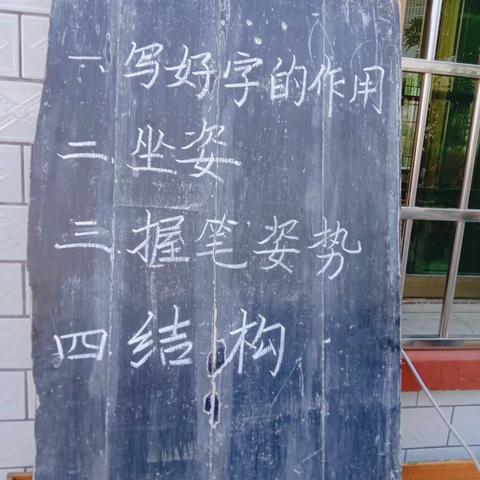 一、写好字的作用
二、坐姿
三、握笔姿势
四、结构